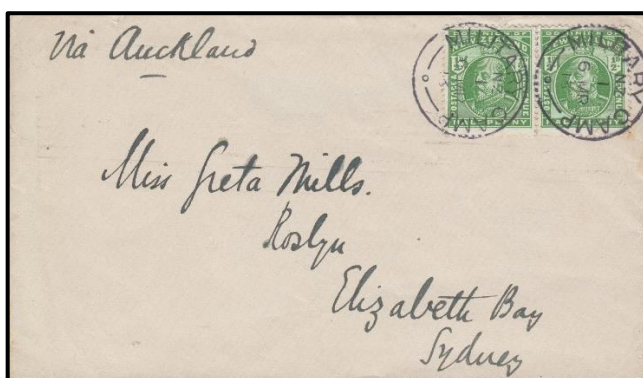 Via Auckland
MILITARY CAMP
MILITARY CAMP
Miss Greta Mills.
Roslyn
Elizabeth Bay
Sydney